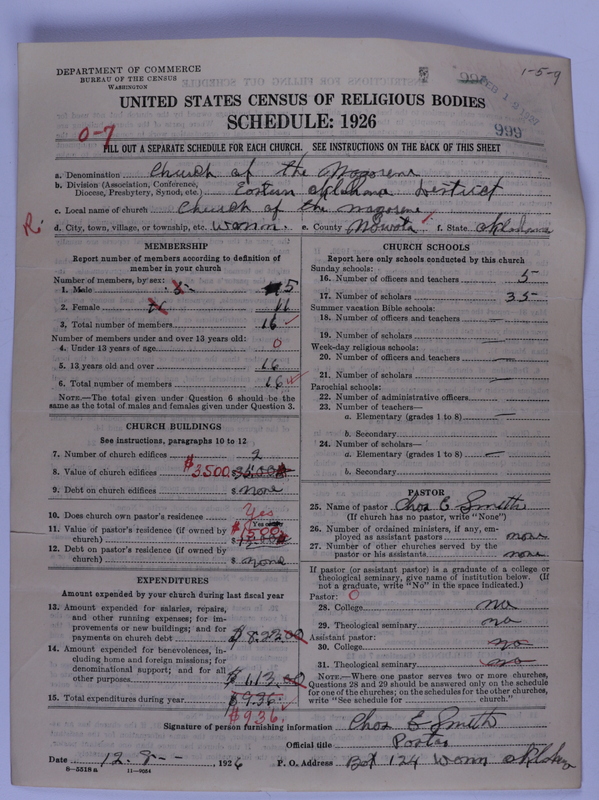 DEPARTMENT OF COMMERCE
BUREAU OF THE CENSUS
WASHINGTON
1-5-9
UNITED STATES CENSUS OF RELIGIOUS BODIES
SCHEDULE: 1926
999
0-7
FILL OUT A SEPARATE SCHEDULE FOR EACH CHURCH. SEE INSTRUCTIONS ON THE BACK OF THIS SHEET
a. Denomination Church of the Nazarene
b. Division (Association, Conference, Diocese, Presbytery, Synod, etc.) Eastern Oklahoma District
c. Local name of church Church of the Nazarene
d. City, town, village, or township, etc. Wann. e. County Nowata f. State Oklahoma
MEMBERSHIP
Report number of members according to definition of
member in your church
Number of members, by sex:
1. Male 5
2. Female 11
3. Total number of members 16
Number of members under and over 13 years old:
4. Under 13 years of age 0
5. 13 years old and over 16
6. Total number of members 16
NOTE.—The total given under Question 6 should be the
same as the total of males and females given under Question 3.
CHURCH BUILDINGS
See instructions, paragraphs 10 to 12
7. Number of church edifices 2
8. Value of church edifices $3500
9. Debt on church edifices $ none
10. Does church own pastor's residence Yes
11. Value of pastor's residence (if owned by
church) $
12. Debt on pastor's residence (if owned by
church) $ none
EXPENDITURES
Amount expended by your church during last fiscal year
13. Amount expended for salaries, repairs,
and other running expenses; for im-
provements or new buildings; and for
payments on church debt $
14. Amount expended for benevolences, in-
cluding home and foreign missions; for
denominational support; and for all
other purposes $ 113.00
15. Total expenditures during year $ 935.
$936.
CHURCH SCHOOLS
Report here only schools conducted by this church
Sunday schools:
16. Number of officers and teachers 5
17. Number of scholars 35
Summer vacation Bible schools:
18. Number of officers and teachers —
19. Number of scholars —
Week-day religious schools:
20. Number of officers and teachers —
21. Number of scholars —
Parochial schools:
22. Number of administrative officers
23. Number of teachers—
a. Elementary (grades 1 to 8) —
b. Secondary
24. Number of scholars—
a. Elementary (grades 1 to 8) —
b. Secondary
PASTOR
25. Name of pastor Chas E Smith
(If church has no pastor, write "None")
26. Number of ordained ministers, if any, em-
ployed as assistant pastors none
27. Number of other churches served by the
pastor or his assistants none
If pastor (or assistant pastor) is a graduate of a college or
theological seminary, give name of institution below. (If
not a graduate, write "No" in the space indicated.)
Pastor: 0
28. College no
29. Theological seminary no
Assistant pastor:
30. College no
31. Theological seminary no
NOTE.—Where one pastor serves two or more churches,
Questions 28 and 29 should be answered only on the schedule
for one of the churches; on the schedules for the other churches,
write "See schedule for church."
Signature of person furnishing information Chas E Smith
Official title Pastor
Date 12-8- , 1926 P. O. Address Box 124 Wann Oklahoma
8—5518a 11—9054